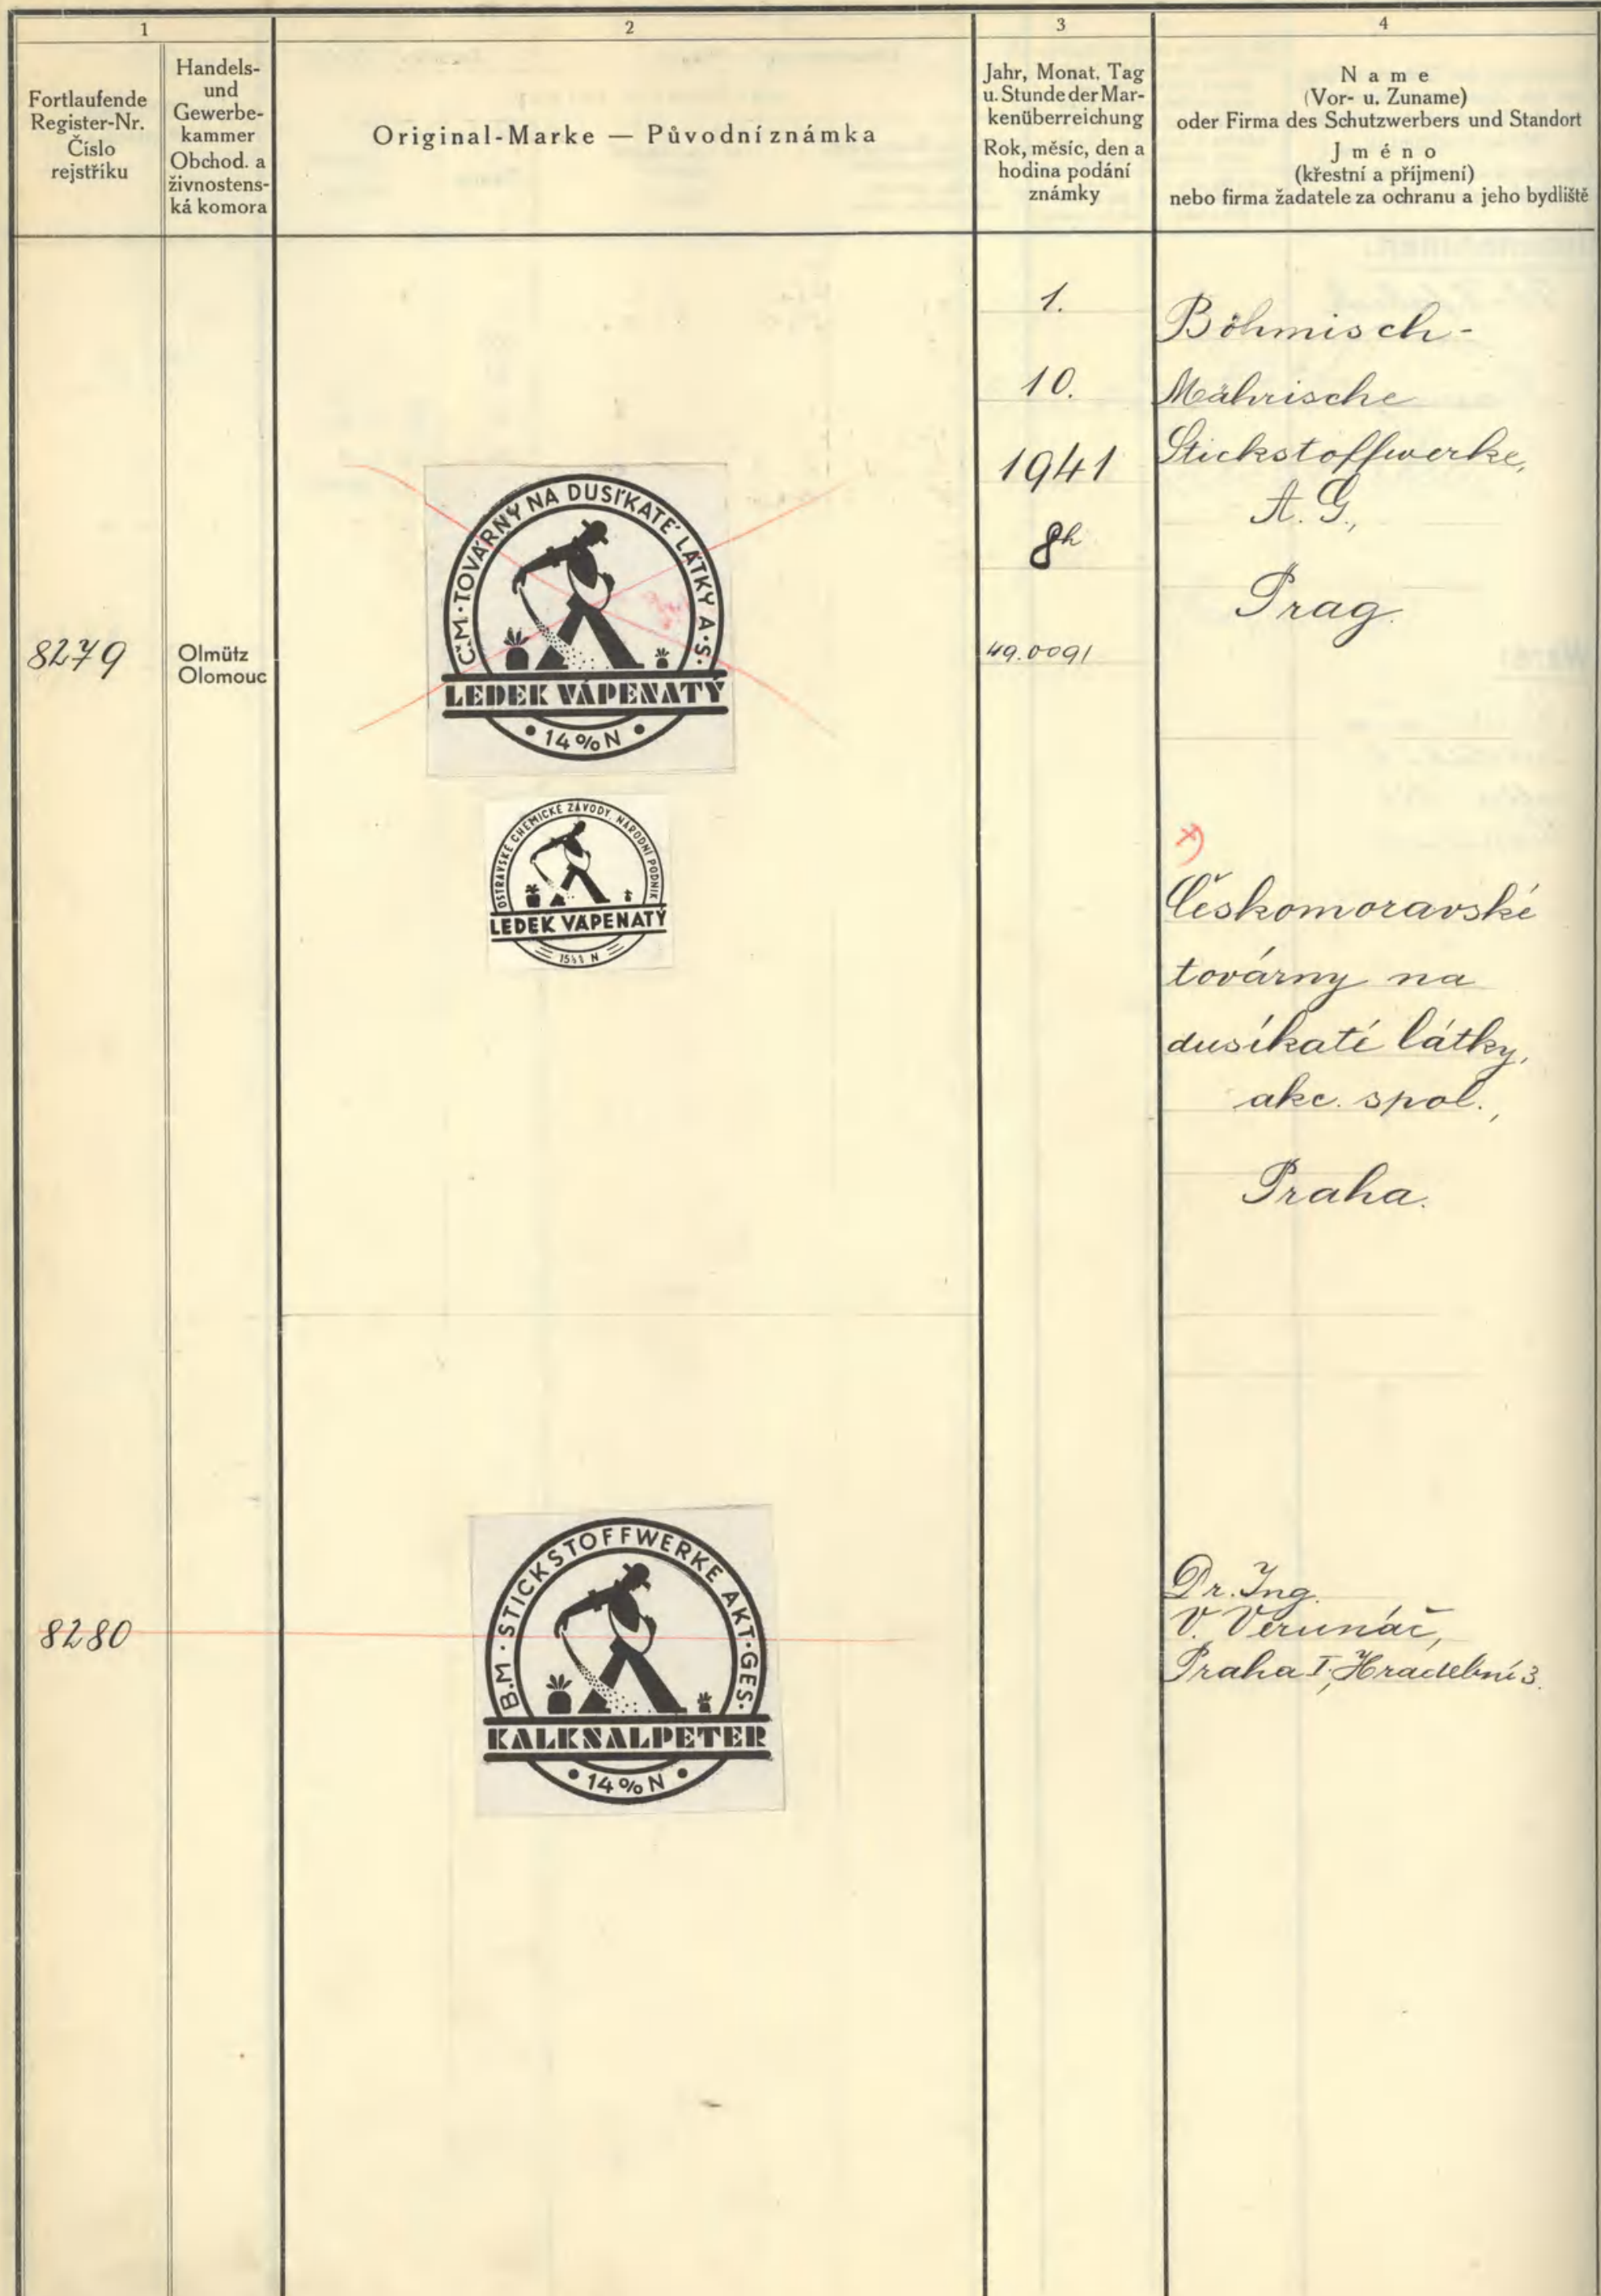 1
2
3
4
Fortlaufende
Register-Nr.
Číslo
rejstříku
Handels-
und
Gewerbe-
kammer
Obchod. a
živnostens-
ká komora
Original-Marke — Původní známka
Jahr, Monat, Tag
u. Stunde der Mar-
kenüberreichung
Rok, měsíc, den a
hodina podání
známky
Name
(Vor- u. Zuname)
oder Firma des Schutzwerbers und Standort
Jméno
(křestní a příjmení)
nebo firma žadatele za ochranu a jeho bydliště
8279
Olmütz
Olomouc
Č.M. TOVÁRNY NA DUSÍKATÉ LÁTKY A.S.
LEDEK VÁPENATÝ
• 14% N •
OSTRAVSKÉ CHEMICKÉ ZÁVODY, NÁRODNÍ PODNIK
LEDEK VÁPENATÝ
N
1.
10.
1941
8h
49.0091
Böhmisch-
Mährische
Stickstoffwerke,
A. G.,
Prag.
x)
Českomoravské
továrny na
dusíkaté látky,
akc. spol.,
Praha.
8280
B.M. STICKSTOFFWERKE AKT.GES.
KALKSALPETER
• 14% N •
Dr. Ing.
V. Verunáč,
Praha I, Hradební 3.